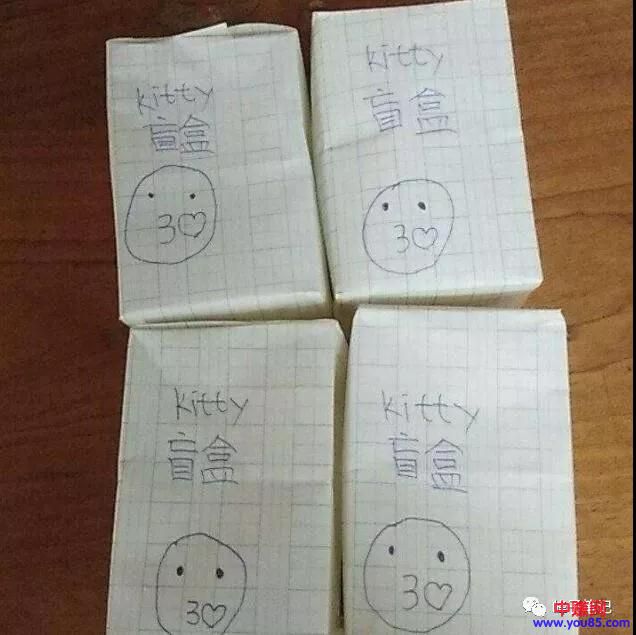 Kitty
盲盒
3♡
Kitty
盲盒
3♡
Kitty
盲盒
3♡
Kitty
盲盒
3♡
www.you85.com